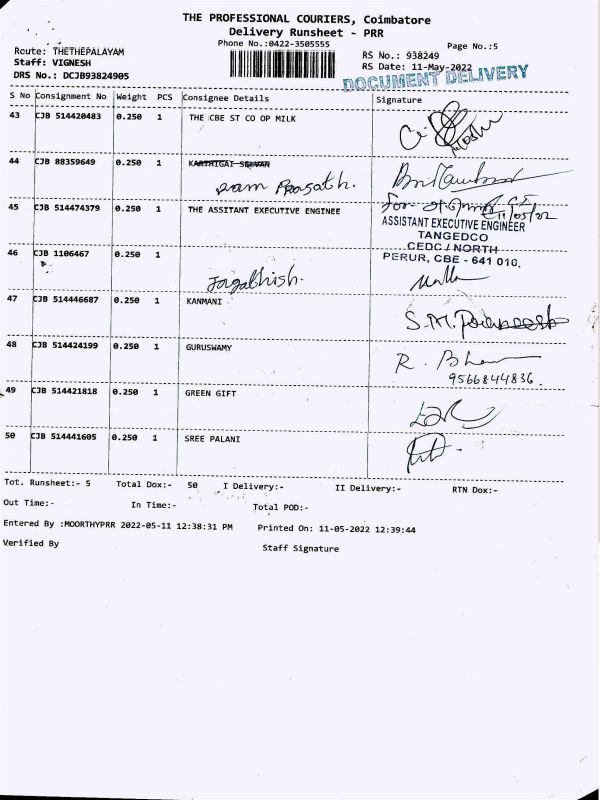 THE PROFESSIONAL COURIERS, Coimbatore
Delivery Runsheet - PRR
Phone No.:0422-3505555
Page No.:5
Route: THETHEPALAYAM
RS No.: 938249
Staff: VIGNESH
RS Date: 11-May-2022
DRS No.: DCJB93824905
DOCUMENT DELIVERY
S No Consignment No Weight PCS Consignee Details Signature
43 CJB 514420483 0.250 1 THE CBE ST CO OP MILK
44 CJB 88359649 0.250 1 KARTHIGAI SELVAN
Ram Prasath.
45 CJB 514474379 0.250 1 THE ASSITANT EXECUTIVE ENGINEE
11/05/22
ASSISTANT EXECUTIVE ENGINEER
TANGEDCO
CEDC / NORTH
PERUR, CBE - 641 010.
46 CJB 1106467 0.250 1
Jagathish.
47 CJB 514446687 0.250 1 KANMANI
S.M.
48 CJB 514424199 0.250 1 GURUSWAMY
R.
9566844836.
49 CJB 514421818 0.250 1 GREEN GIFT
50 CJB 514441605 0.250 1 SREE PALANI
Tot. Runsheet:- 5 Total Dox:- 50 I Delivery:- II Delivery:- RTN Dox:-
Out Time:- In Time:- Total POD:-
Entered By :MOORTHYPRR 2022-05-11 12:38:31 PM Printed On: 11-05-2022 12:39:44
Verified By Staff Signature